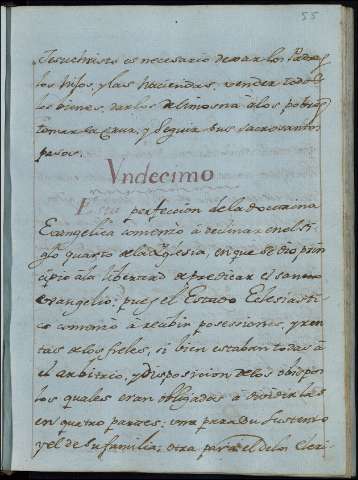 55
Jesuchristo es necesario dexar los Padres
los hijos, y las haciendas, vender todos
los bienes, darlos de limosna a los pobres
tomar la Cruz, y seguir sus sacrosantos
pasos.
Vndecimo
Esta perfección de la doctrina
Evangelica comenzó a declinar en el si-
glo quarto de la Yglesia, en que se dio prin-
cipio a la libertad de predicar el santo
Evangelio; pues el Estado Eclesiasti-
co comenzó a recibir posesiones, y ren-
tas de los fieles, si bien estaban todas a
el arbitrio, y disposicion de los obispos
los quales eran obligados a dividirlas
en quatro partes: una para su sustento
y el de su familia; otra para el de los Cleri-